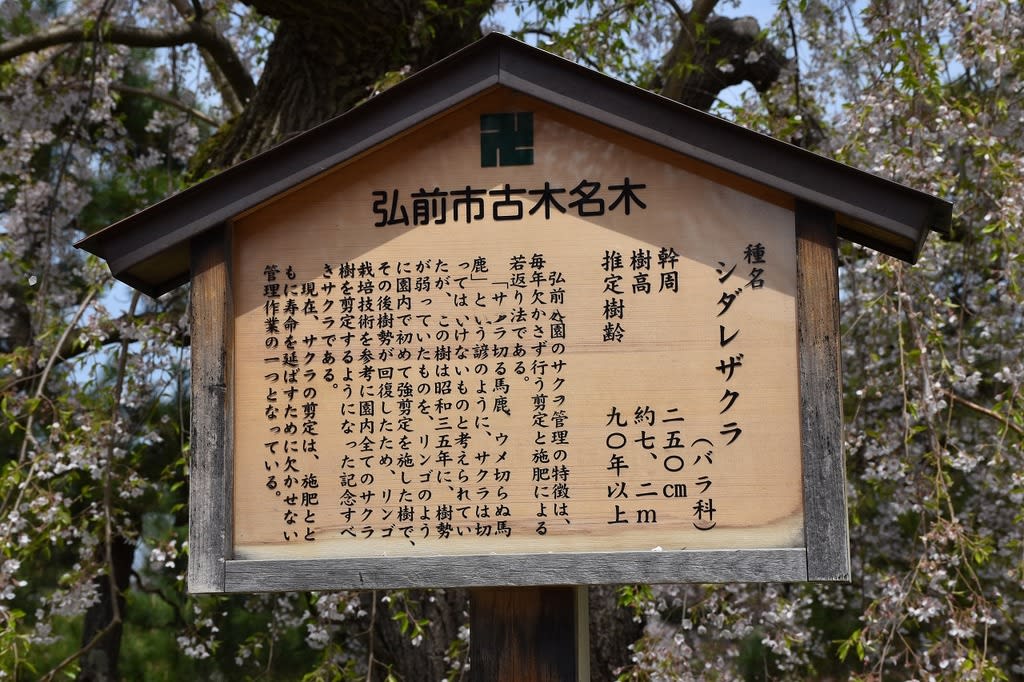 卍
弘前市古木名木
種名
シダレザクラ
（バラ科）
幹周 二五〇cm
樹高 約七、二m
推定樹齢 九〇年以上
弘前公園のサクラ管理の特徴は、
毎年欠かさず行う剪定と施肥による
若返り法である。
「サクラ切る馬鹿、ウメ切らぬ馬
鹿」という諺のように、サクラは切
ってはいけないものと考えられてい
たが、この樹は昭和三五年に、樹勢
が弱っていたものを、リンゴのよう
に園内で初めて強剪定を施した樹で、
その後樹勢が回復したため、リンゴ
栽培技術を参考に園内全てのサクラ
樹を剪定するようになった記念すべ
きサクラである。
現在、サクラの剪定は、施肥とと
もに寿命を延ばすために欠かせない
管理作業の一つとなっている。